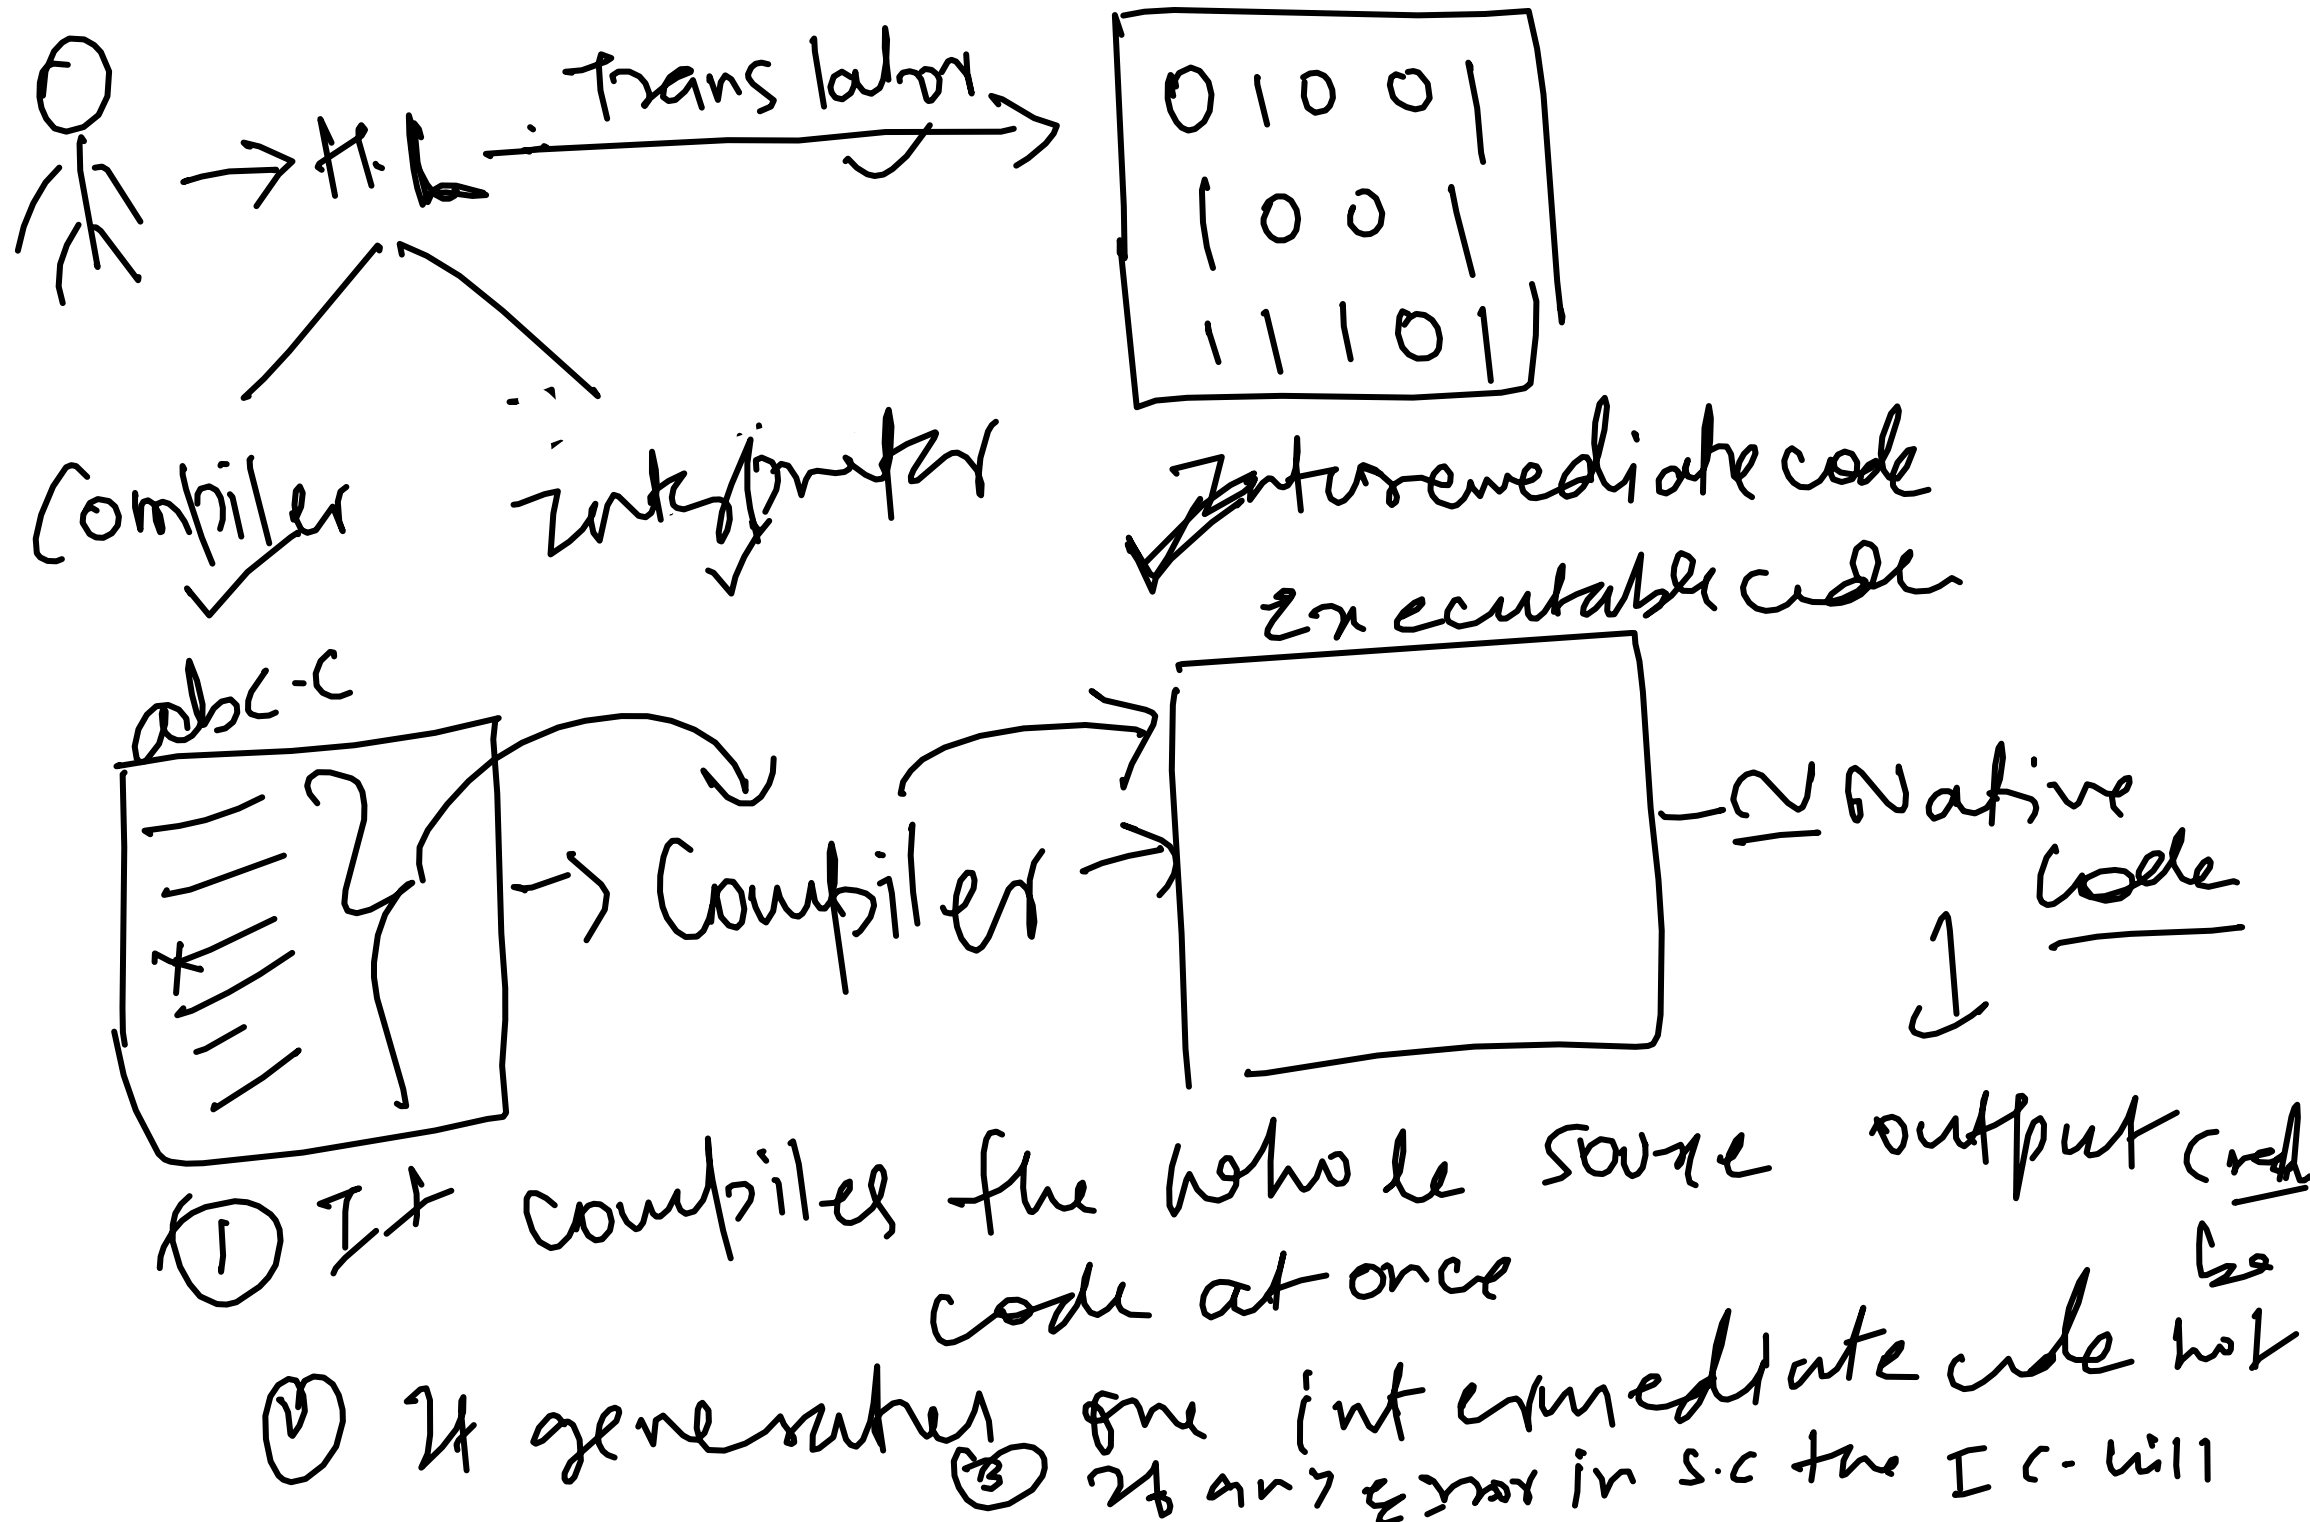 Translation
H L
0 1 0 0 1
1 0 0 1
1 1 1 0 1
Compiler
Interpreter
Intermediate code
Executable code
abc-c
Compiler
Native
Code
output
① It compiles the whole source
code at once
It generates the intermediate code but
③ If any error in S.C the I C - will